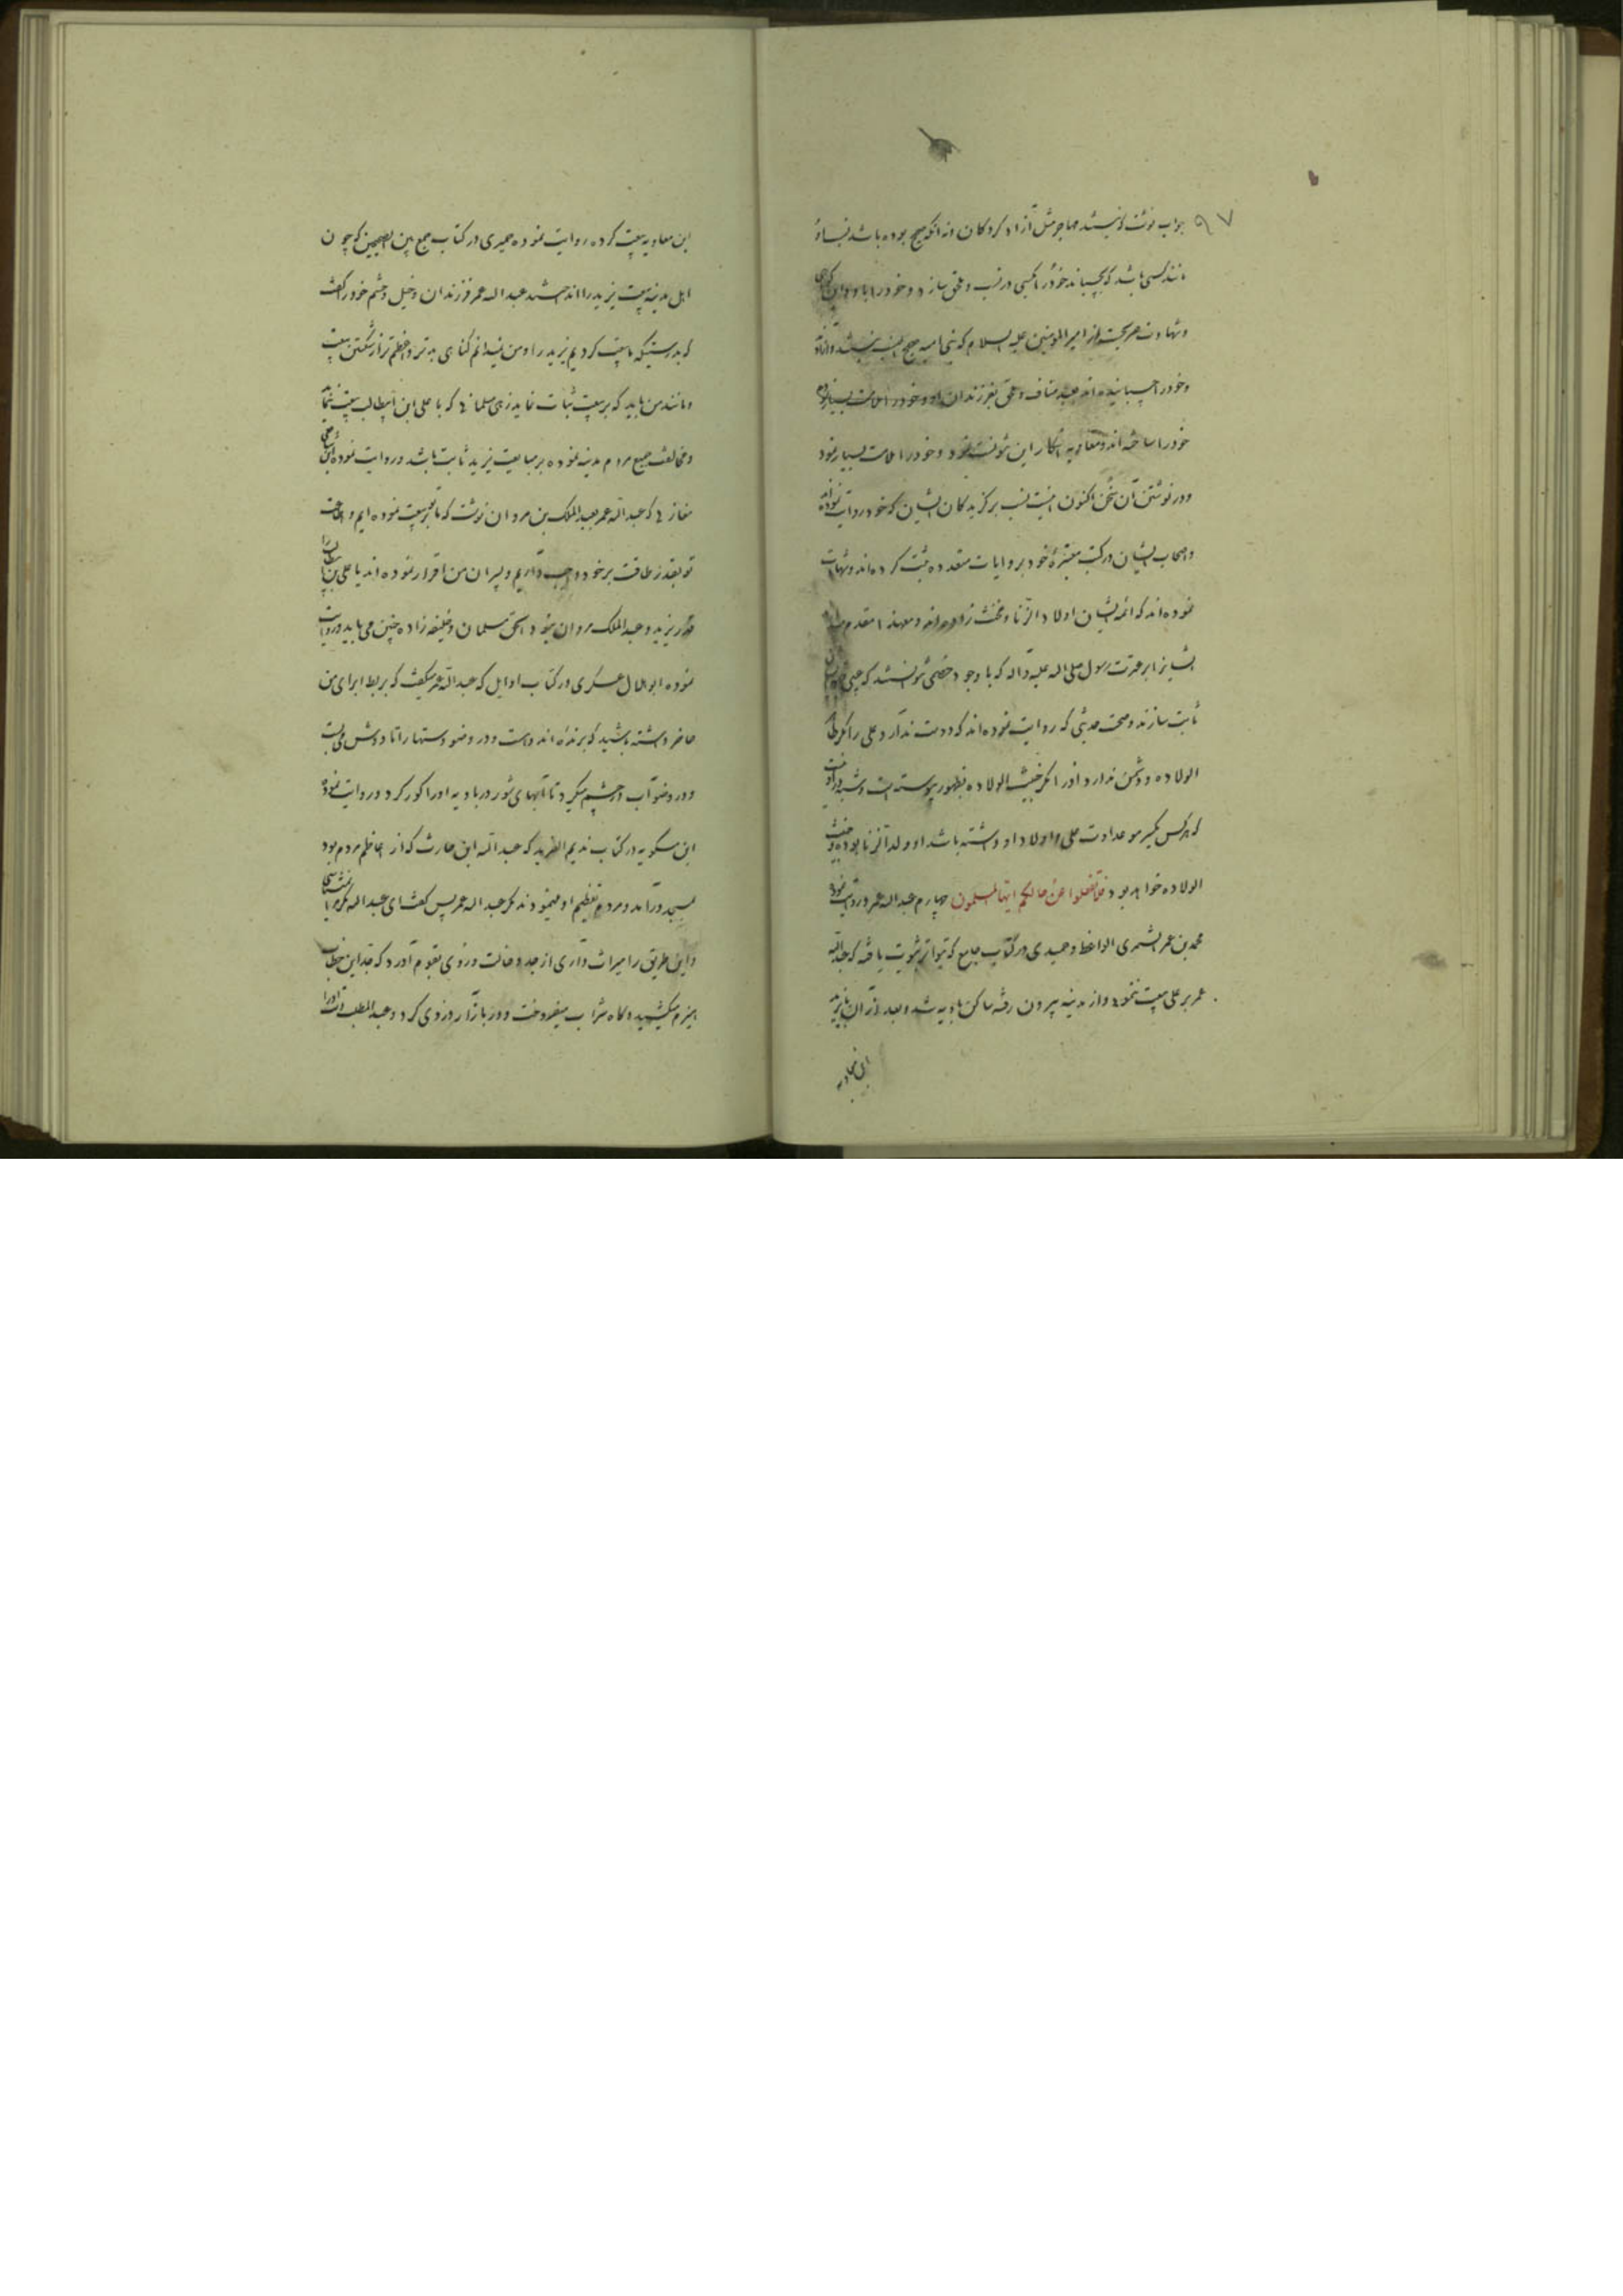 ۹۷
جواب نوشت که نیستند مهاجر مثل آزاد کردکان و نه آنکه صحیح بوده باشد نسب او
مانند کسی باشد که بچسباند خود را بکسی در نسب و ملحق سازد و خود را باو
و شهادت صریحست از امیر المومنین علیه السلام که بنی امیه صحیح النسب نیستند و آزاد
و خود را چسبانیده اند بعبد مناف و ملحق بفرزندان او و خود را
خود را ساخته اند و معاویه انکار این نتوانست نمود و خود را ملامت بسیار نمود
و در نوشتن آن سخن اکنون اینست نسب برکزیدکان ایشان که خود روایت نموده اند
و اصحاب ایشان در کتب معتبره خود بروایات متعدده ثبت کرده اند و شهادت
نموده اند که ائمه ایشان اولاد الزنا و مخنث زاده اند و معهذا مقدم
ایشانرا بر عترت رسول صلی اله علیه و اله که با وجود خصمی نتوانستند که عیبی
ثابت سازند و صحت حدیثی که روایت نموده اند که دوست ندارد علی را مکر طاهر
الولاده و دشمن ندارد او را مکر خبیث الولاده بظهور پیوسته است و شبهه در آن نیست
که هر کس یکسر مو عداوت علی و اولاد او داشته باشد او ولد الزنا بوده و خبیث
الولاده خواهد بود فلا تغفلوا عن حالکم ایها المسلمون چهارم عبد اله عمر و روایت نموده
محمد بن عمر الشمری الواعظ و حمیدی در کتاب جامع که بتواتر ثبوت یافته که عبد الله
عمر بر علی بیعت ننموده و از مدینه بیرون رفته ساکن بادیه شد و بعد از آن با یزید
ابن معاویه
ابن معاویه بیعت کرده روایت نموده حمیدی در کتاب جمع بین الصحیحین که چون
اهل مدینه بیعت یزید را انداختند عبد اله عمر فرزندان و خیل و حشم خود را کفت
که بدرستیکه ما بیعت کردیم یزید را و من نمیدانم کناهی بدتر و عظیم تر از شکستن بیعت
و مانند من باید که بر بیعت ثبات نماید زهی مسلمانی که با علی ابن ابیطالب بیعت ننماید
و مخالفت جمیع مردم مدینه نموده بر مبایعت یزید ثابت باشد و روایت نموده
مغازلی که عبد الله عمر بعبد الملک بن مروان نوشت که ما بتو بیعت نموده ایم و اطاعت
تو بقدر طاقت بر خود واجب داریم و پسران من اقرار نموده اند یا علی بن ابیطالب را
یزید و عبد الملک مروان نبود الحق مسلمان و خلیفه زاده چنین می باید و روایت
نموده ابو هلال عسکری در کتاب اوایل که عبد الله عمر میکفت که بربط را برای من
حاضر داشته باشید که برنده اندوهست و در وضو دستها را تا دوش می شست
و در وضو آب در چشم میکرد تا آبهای شور در بادیه او را کور کرد و روایت نموده
ابن مسکویه در کتاب ندیم الفرید که عبد الله ابن حارث که از اعاظم مردم بود
بمسجد در آمد و مردم تعظیم او مینمودند مکر عبد اله عمر پس کفت ای عبد اله
و این طریق را میراث داری از جد و خالت و روی بقوم آورد که جد این خطاب
هیزم میکشید و کاه شراب میفروخت و در بازار دزدی کرد و عبد المطلب او را